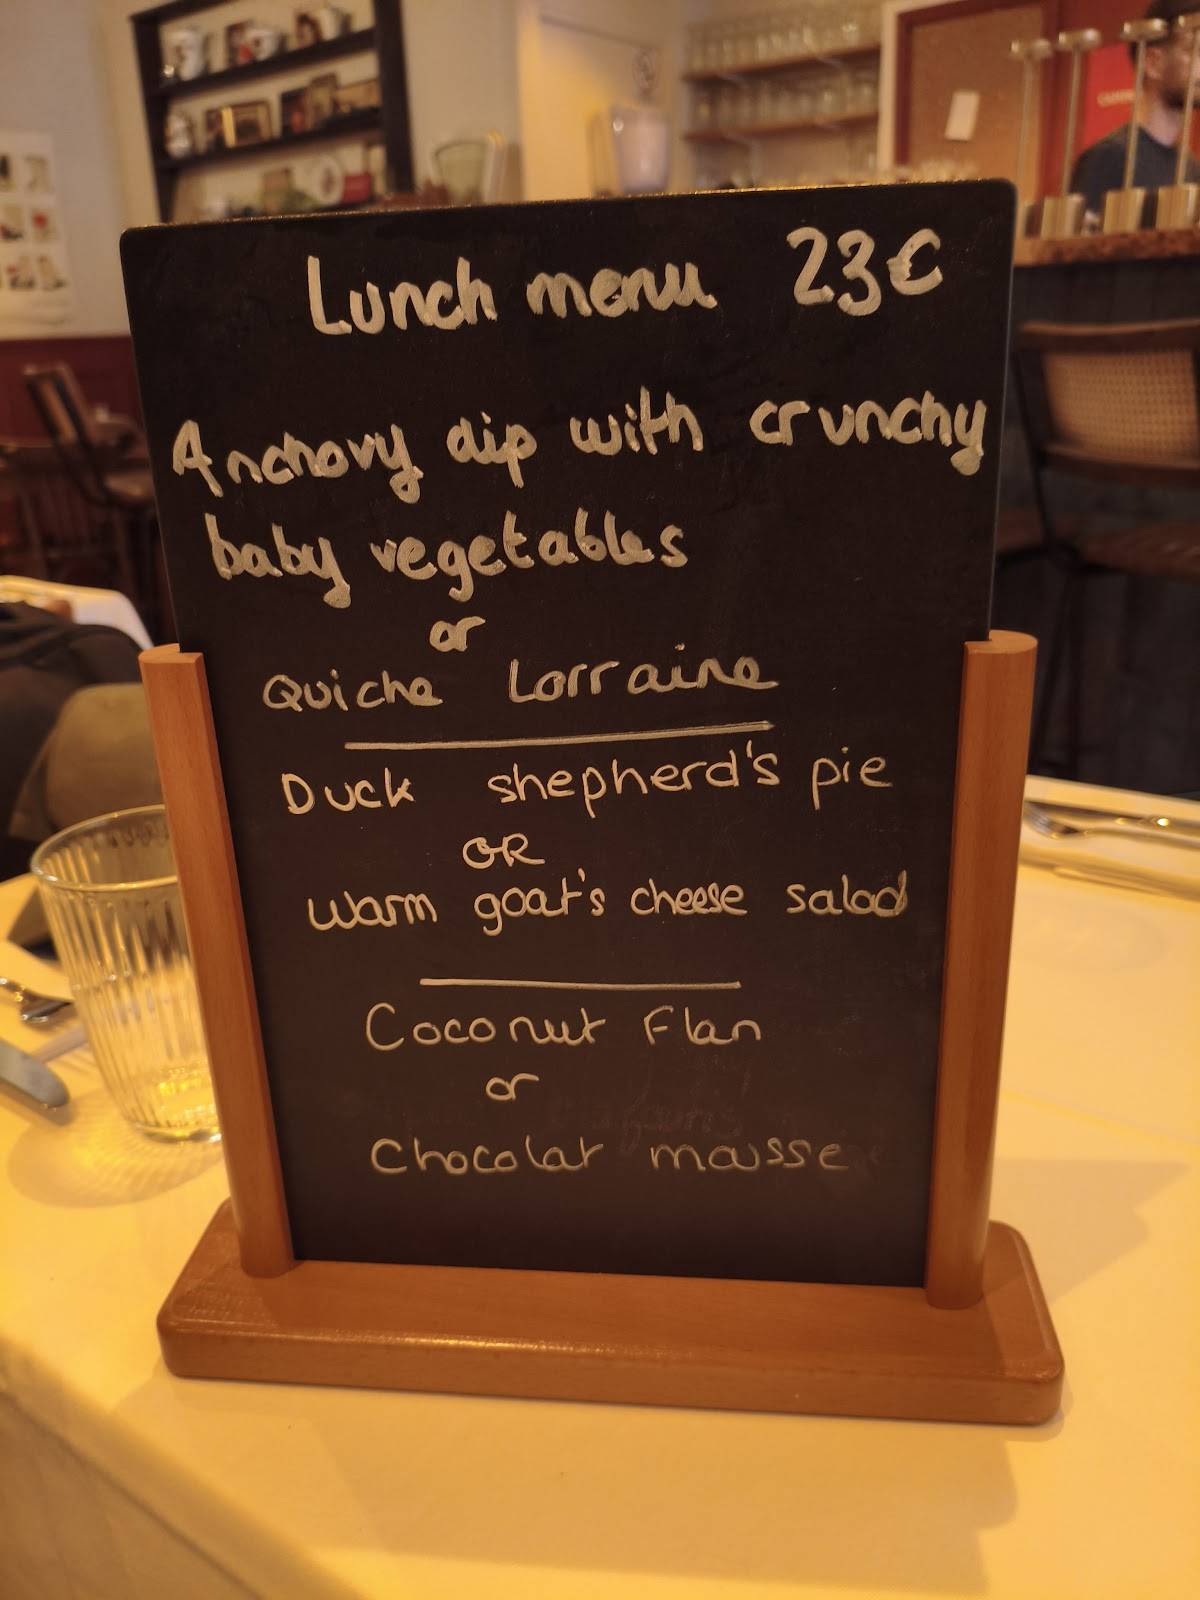 Lunch menu 23€
Anchovy dip with crunchy
baby vegetables
or
Quiche Lorraine
Duck shepherd's pie
OR
warm goat's cheese salad
Coconut Flan
or
Chocolat mousse